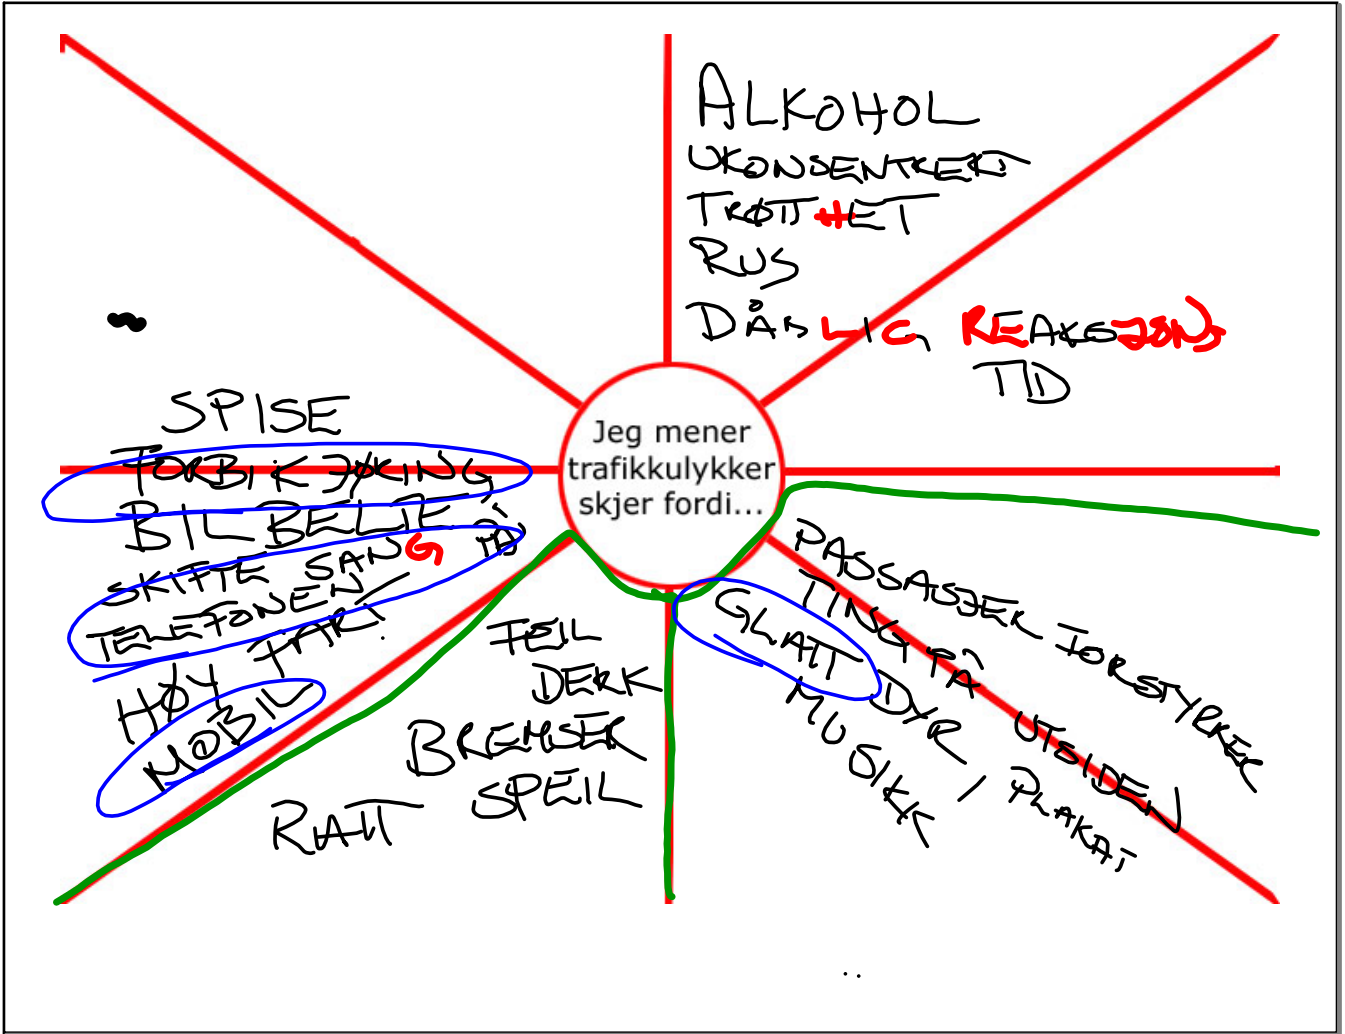 Jeg mener
trafikkulykker
skjer fordi...
ALKOHOL
UKONSENTRERT
TRØTTHET
RUS
DÅRLIG REAKSJONS
TID
SPISE
FORBIKJØRING
BILBELTE
SKIFTE SANG PÅ
TELEFONEN
HØY FART
MOBIL
FEIL
DEKK
BREMSER
SPEIL
RATT
PASSASJER FORSTYRRER
TING PÅ UTSIDEN
GLATT DYR, PLAKAT
MUSIKK